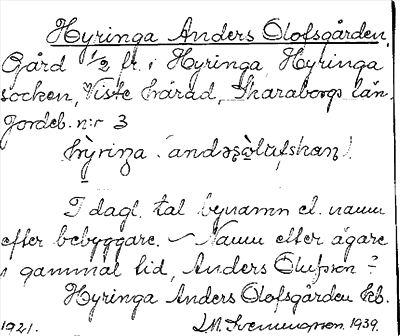 Hyringa Anders Olofsgården.
Gård 1/2 fr. i Hyringa, Hyringa
socken, Viste härad, Skaraborgs län.
Jordeb. n:r 3
I dagl. tal bynamn el. namn
efter bebyggare. – Namn efter ägare
i gammal tid, Anders Olufson?
Hyringa Anders Olofsgården
1921. 1939.